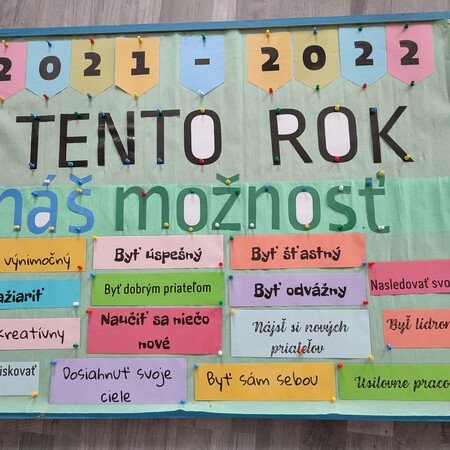 2021 - 2022
TENTO ROK
máš možnosť
výnimočný
Byť úspešný
Byť šťastný
žiariť
Byť dobrým priateľom
Byť odvážny
Nasledovať svo
kreatívny
Naučiť sa niečo
nové
Nájsť si nových
priateľov
Byť lídrom
iskovať
Dosiahnuť svoje
ciele
Byť sám sebou
Usilovne praco